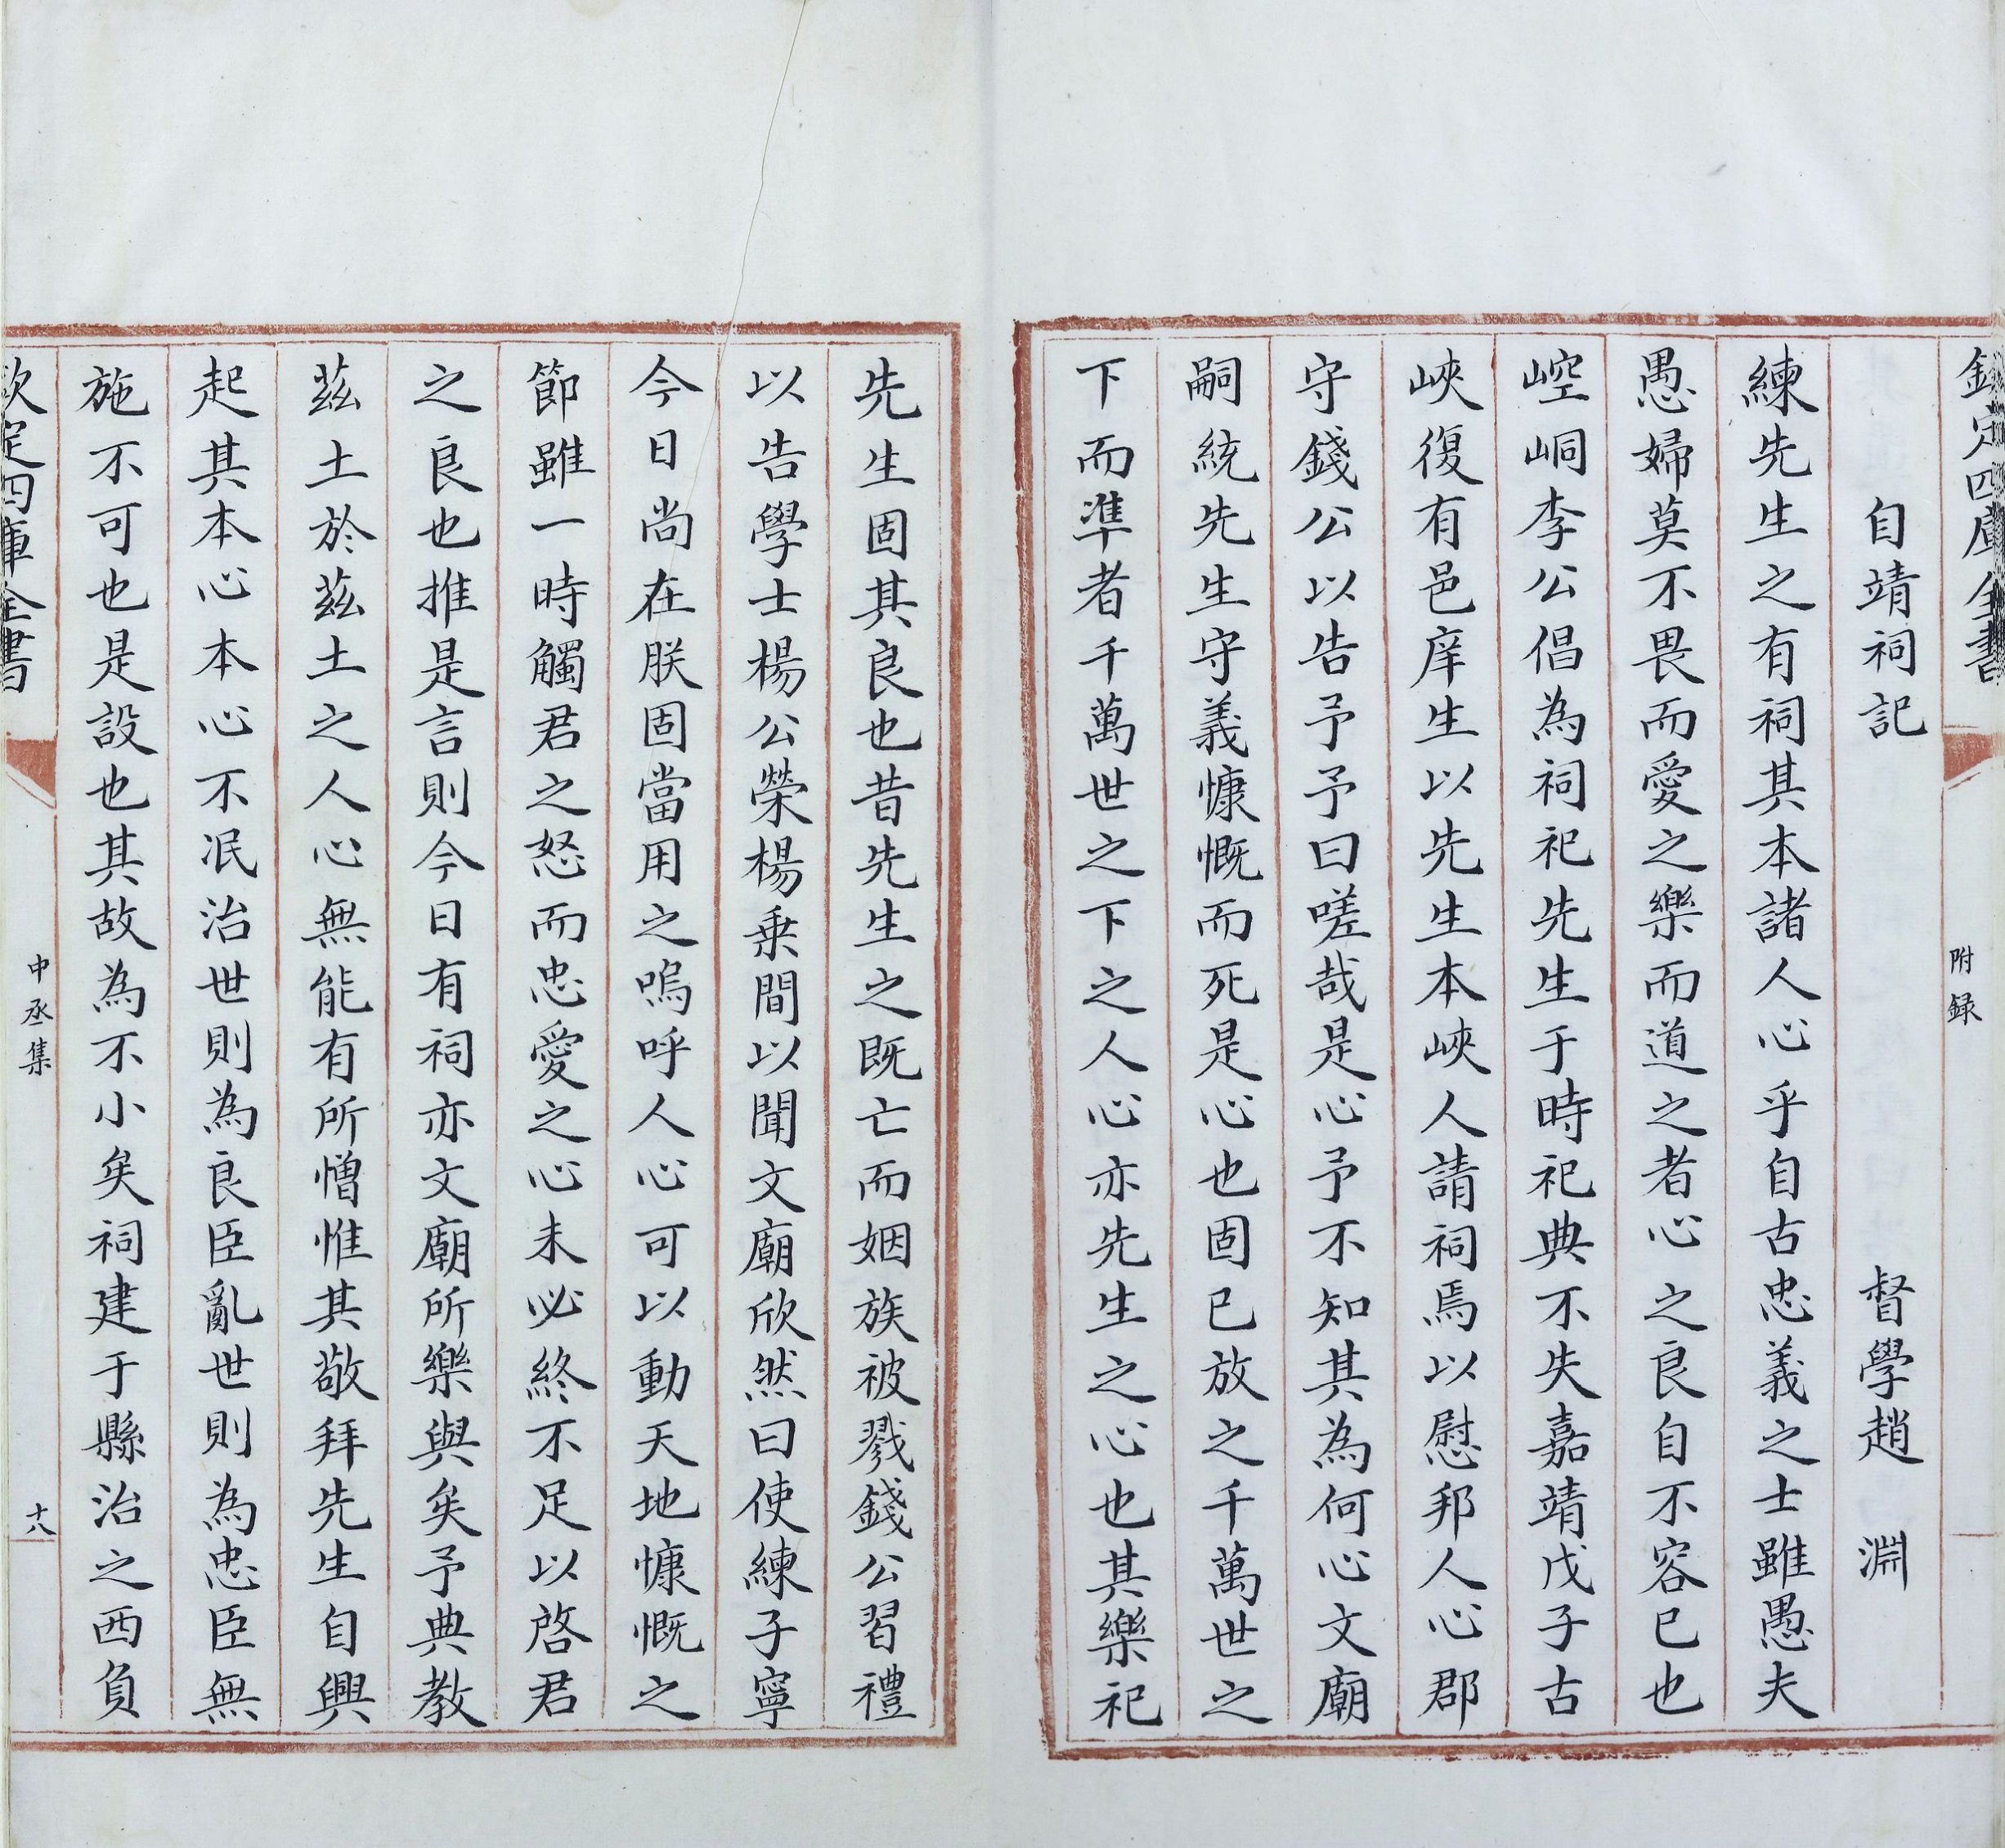 欽定四庫全書
附録
自靖祠記　督學趙　淵
練先生之有祠其本諸人心乎自古忠義之士雖愚夫
愚婦莫不畏而愛之樂而道之者心之良自不容已也
崆峒李公倡為祠祀先生于時祀典不失嘉靖戊子古
峽復有邑庠生以先生本峽人請祠焉以慰邦人心郡
守錢公以告予予曰嗟哉是心予不知其為何心文廟
嗣統先生守義慷慨而死是心也固已放之千萬世之
下而凖者千萬世之下之人心亦先生之心也其樂祀
先生固其良也昔先生之既亡而姻族被戮錢公習禮
以告學士楊公榮楊乗間以聞文廟欣然曰使練子寧
今日尚在朕固當用之嗚呼人心可以動天地慷慨之
節雖一時觸君之怒而忠愛之心未必終不足以啓君
之良也推是言則今日有祠亦文廟所樂與矣予典教
茲土於茲土之人心無能有所憎惟其敬拜先生自興
起其本心本心不泯治世則為良臣亂世則為忠臣無
施不可也是設也其故為不小矣祠建于縣治之西負
欽定四庫全書
中丞集
十八